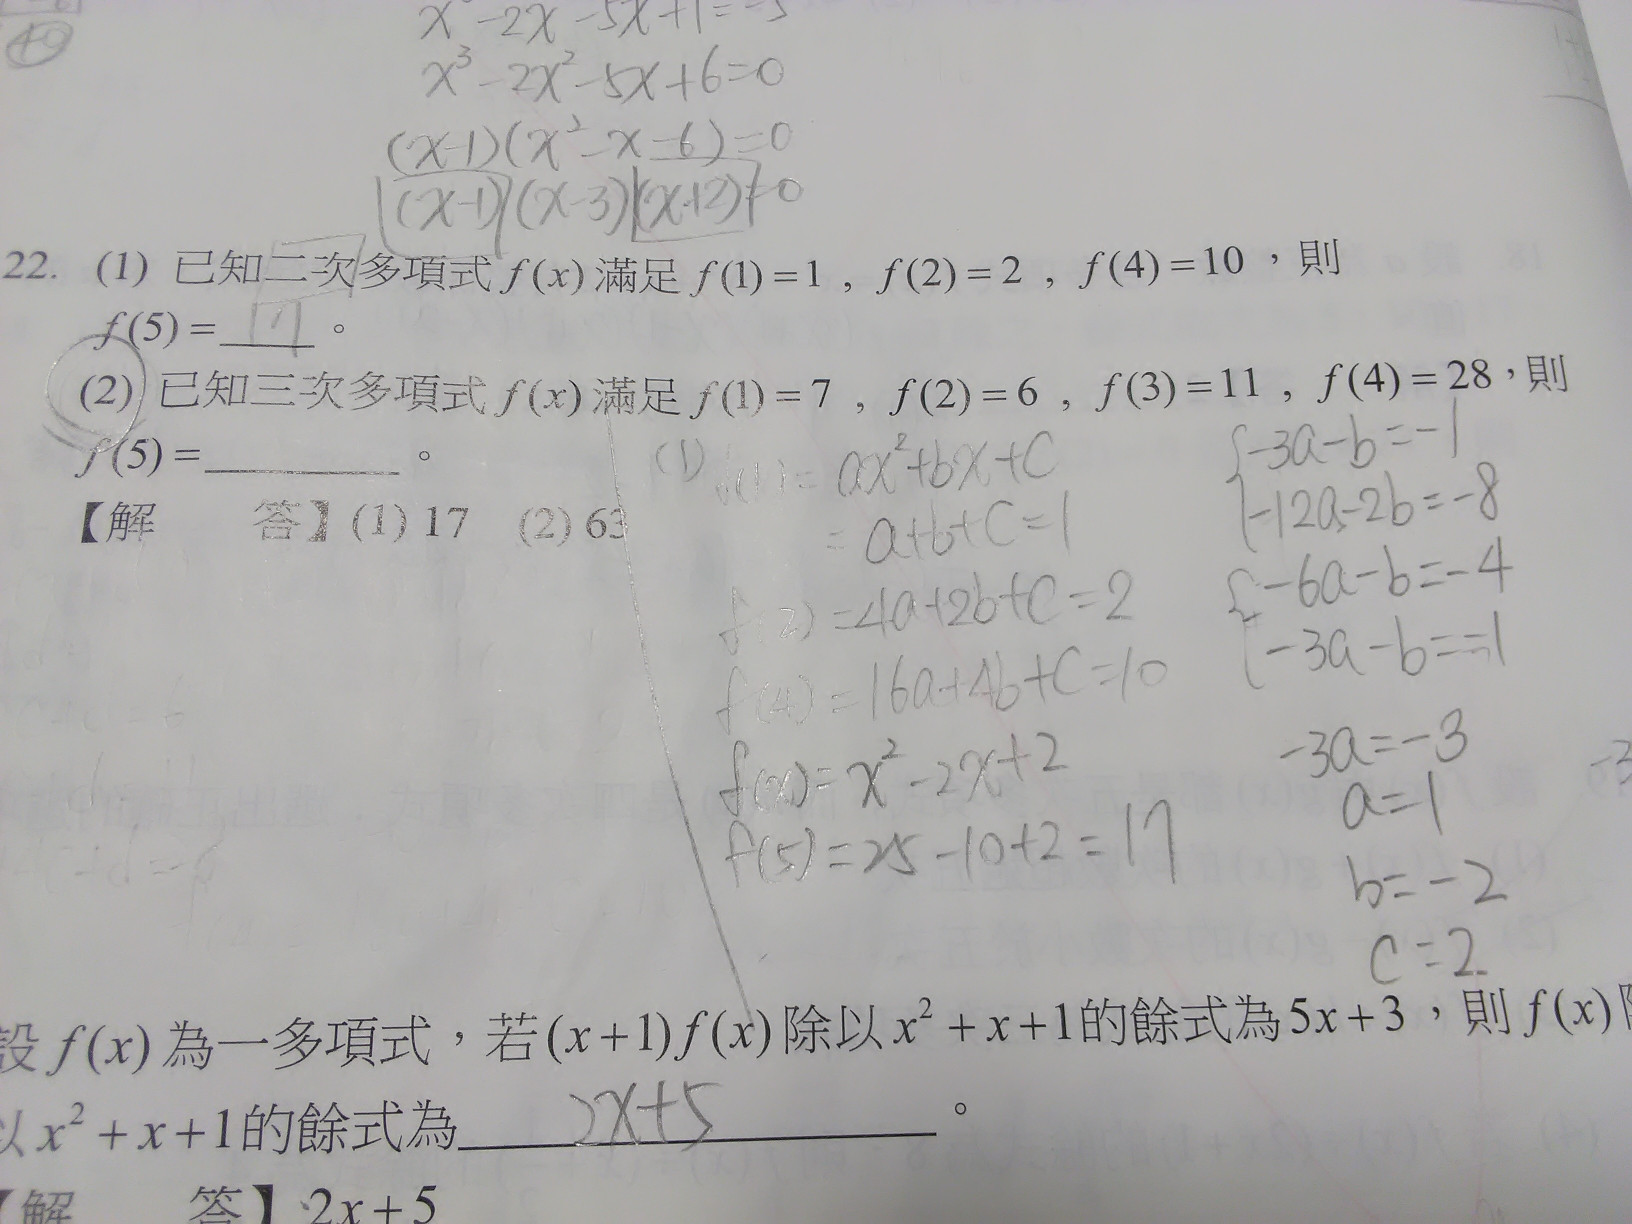 x³-2x²-5x+6=0
(x-1)(x²-x-6)=0
(x-1)(x-3)(x+2)=0
22. (1) 已知二次多項式 f(x) 滿足 f(1)=1 , f(2)=2 , f(4)=10 ,則
f(5)= 17 。
(2) 已知三次多項式 f(x) 滿足 f(1)=7 , f(2)=6 , f(3)=11 , f(4)=28 ,則
f(5)=________ 。
【解 答】(1) 17 (2) 63
(1) f(1)= ax²+bx+C
= a+b+C=1
f(2)=4a+2b+C=2
f(4)=16a+4b+C=10
f(x)=x²-2x+2
f(5)=25-10+2=17
-3a-b=-1
-12a-2b=-8
-6a-b=-4
-3a-b=-1
-3a=-3
a=1
b=-2
C=2
設 f(x) 為一多項式,若 (x+1)f(x) 除以 x²+x+1 的餘式為 5x+3 ,則 f(x)
以 x²+x+1 的餘式為 2x+5 。
【解 答】2x+5